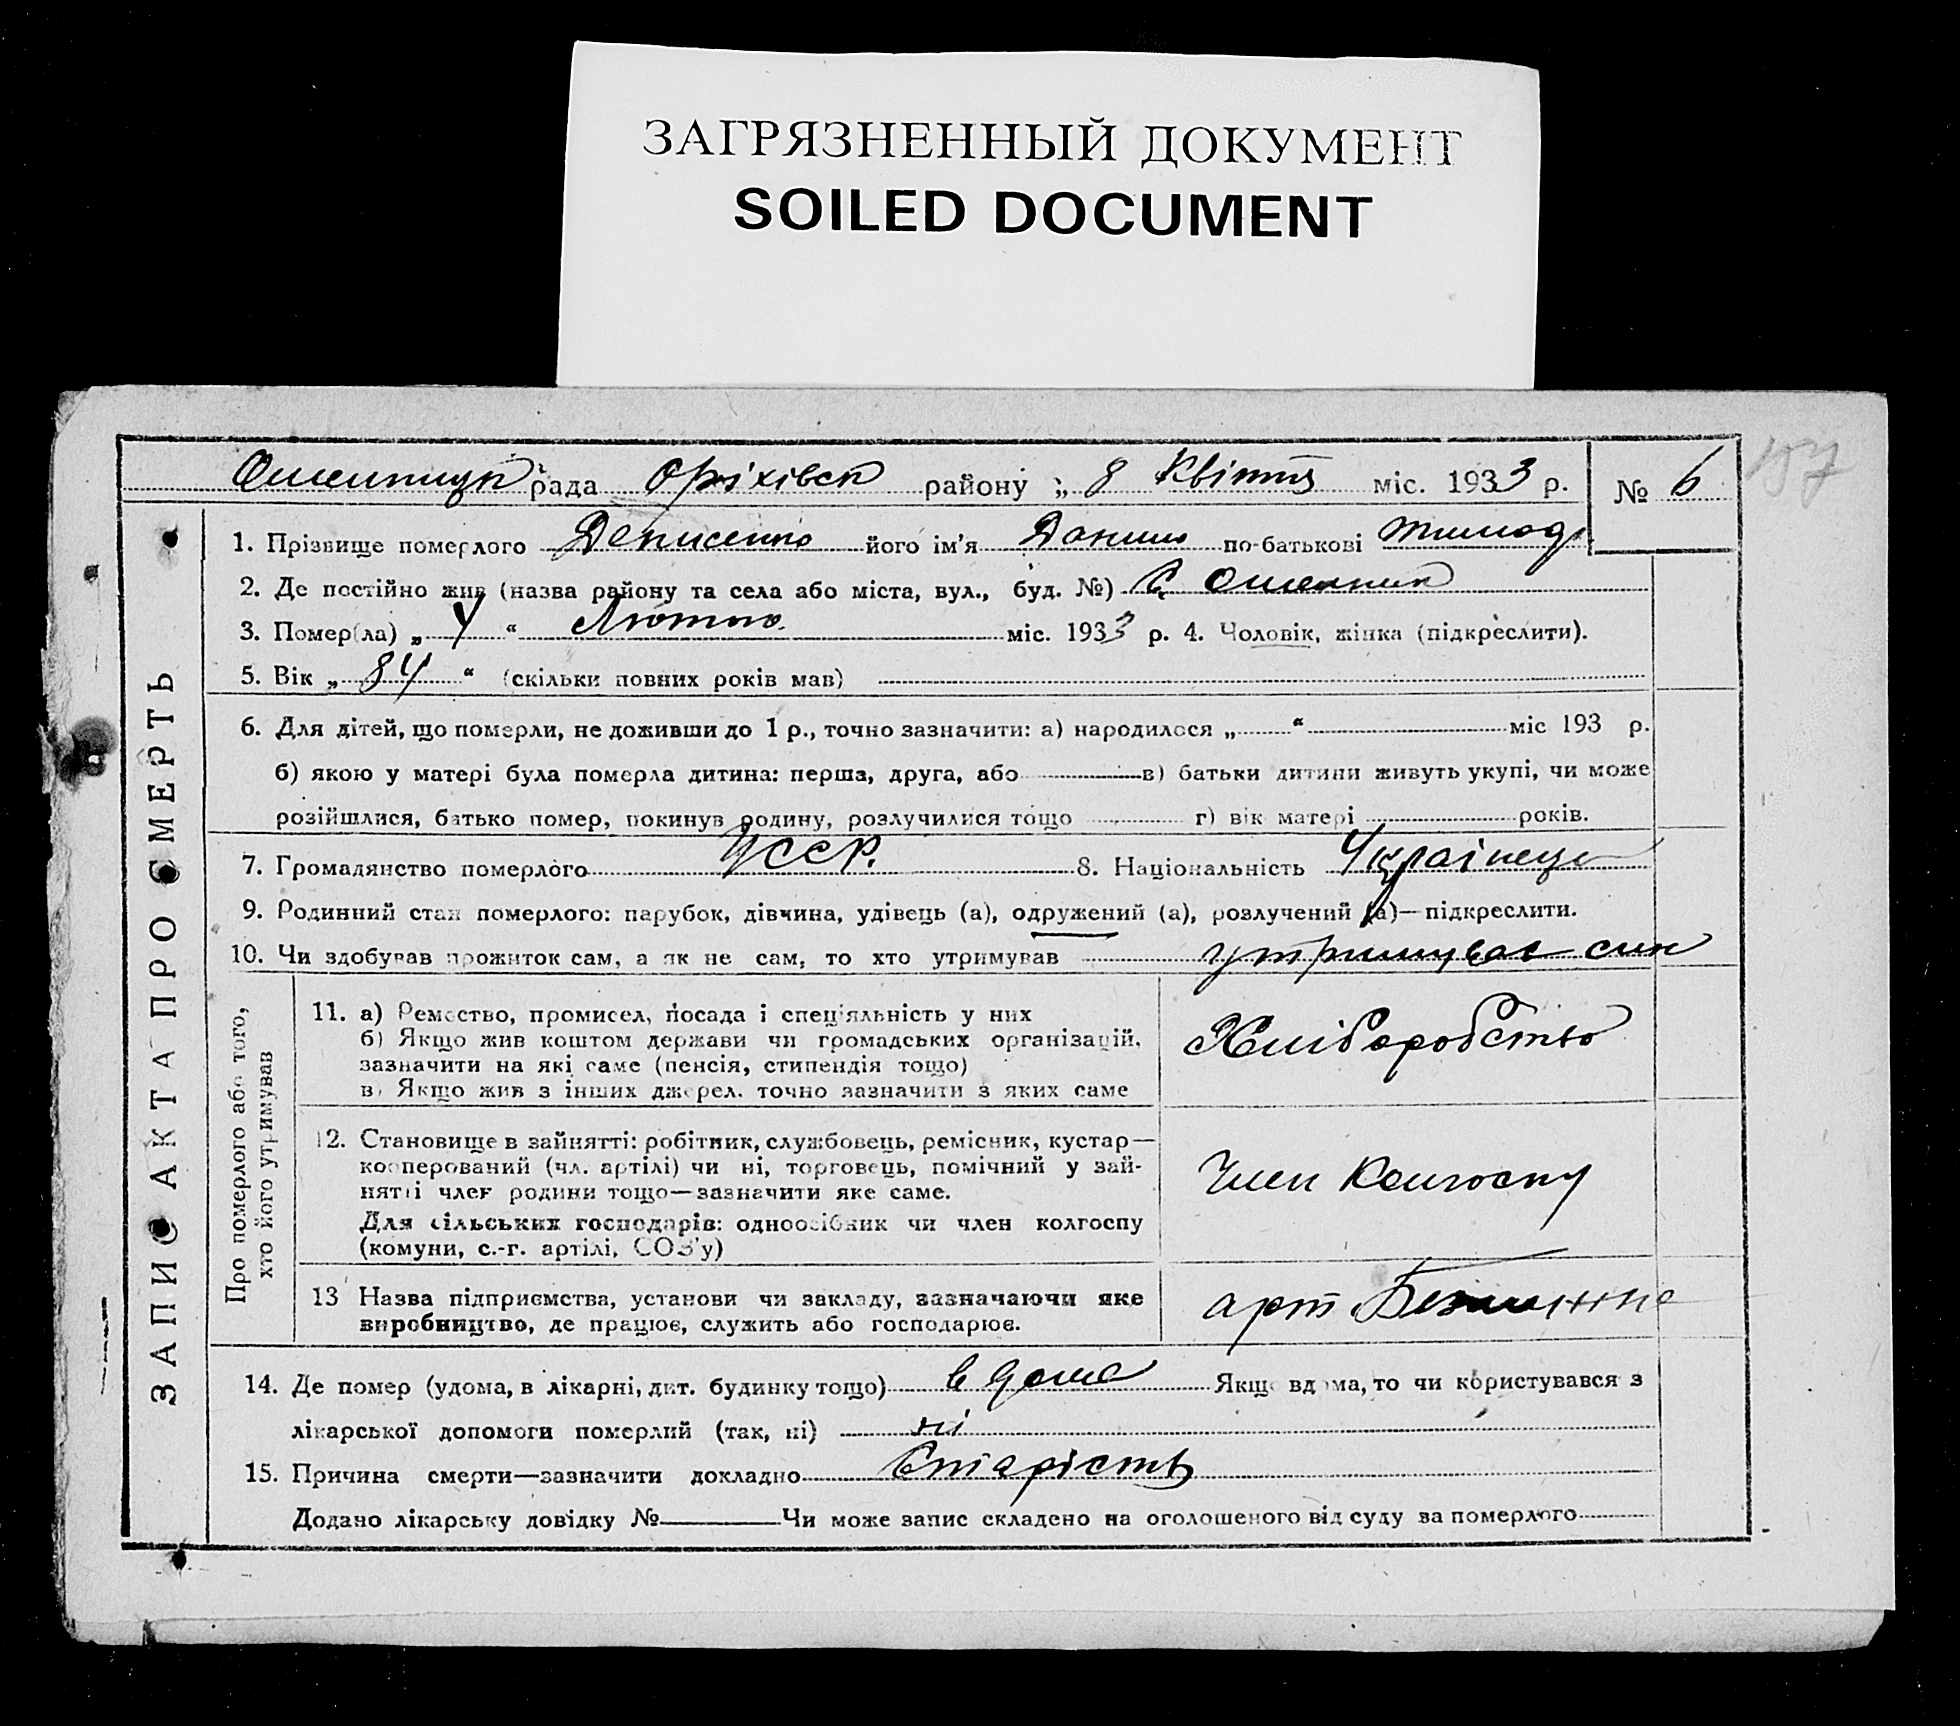 ЗАГРЯЗНЕННЫЙ ДОКУМЕНТ
SOILED DOCUMENT
157
рада Оріхівск району „ 8 Квітня міс. 1933 р. № 6
ЗАПИС АКТА ПРО СМЕРТЬ
1. Прізвище померлого Денисенко його ім'я Данило по-батькові Тимоф
2. Де постійно жив (назва району та села або міста, вул., буд. №) С.
3. Помер(ла) „ 4 “ Лютого міс. 1933 р. 4. Чоловік, жінка (підкреслити).
5. Вік „ 84 “ (скільки повних років мав)
6. Для дітей, що померли, не доживши до 1 р., точно зазначити: а) народилося „ “ міс 193 р.
б) якою у матері була померла дитина: перша, друга, або в) батьки дитини живуть укупі, чи може
розійшлися, батько помер, покинув родину, розлучилися тощо г) вік матері років.
7. Громадянство померлого УССР. 8. Національність Українець
9. Родинний стан померлого: парубок, дівчина, удівець (а), одружений (а), розлучений (а)—підкреслити.
10. Чи здобував прожиток сам, а як не сам, то хто утримував утримував син
Про померлого або того,
хто його утримував
11. а) Ремество, промисел, посада і спеціяльність у них
б) Якщо жив коштом держави чи громадських організацій,
зазначити на які саме (пенсія, стипендія тощо)
в) Якщо жив з інших джерел, точно зазначити з яких саме
Хліборобство
12. Становище в зайнятті: робітник, службовець, ремісник, кустар—
кооперований (чл. артілі) чи ні, торговець, помічний у зай-
нятті член родини тощо—зазначити яке саме.
Для сільських господарів: одноосібник чи член колгоспу
(комуни, с.-г. артілі, СОЗ'у)
Член Колгоспу
13 Назва підприємства, установи чи закладу, зазначаючи яке
виробництво, де працює, служить або господарює.
арт
14. Де помер (удома, в лікарні, дит. будинку тощо) в дома Якщо вдома, то чи користувався з
лікарської допомоги померлий (так, ні) ні
15. Причина смерти—зазначити докладно Старість
Додано лікарську довідку № Чи може запис складено на оголошеного від суду за померлого